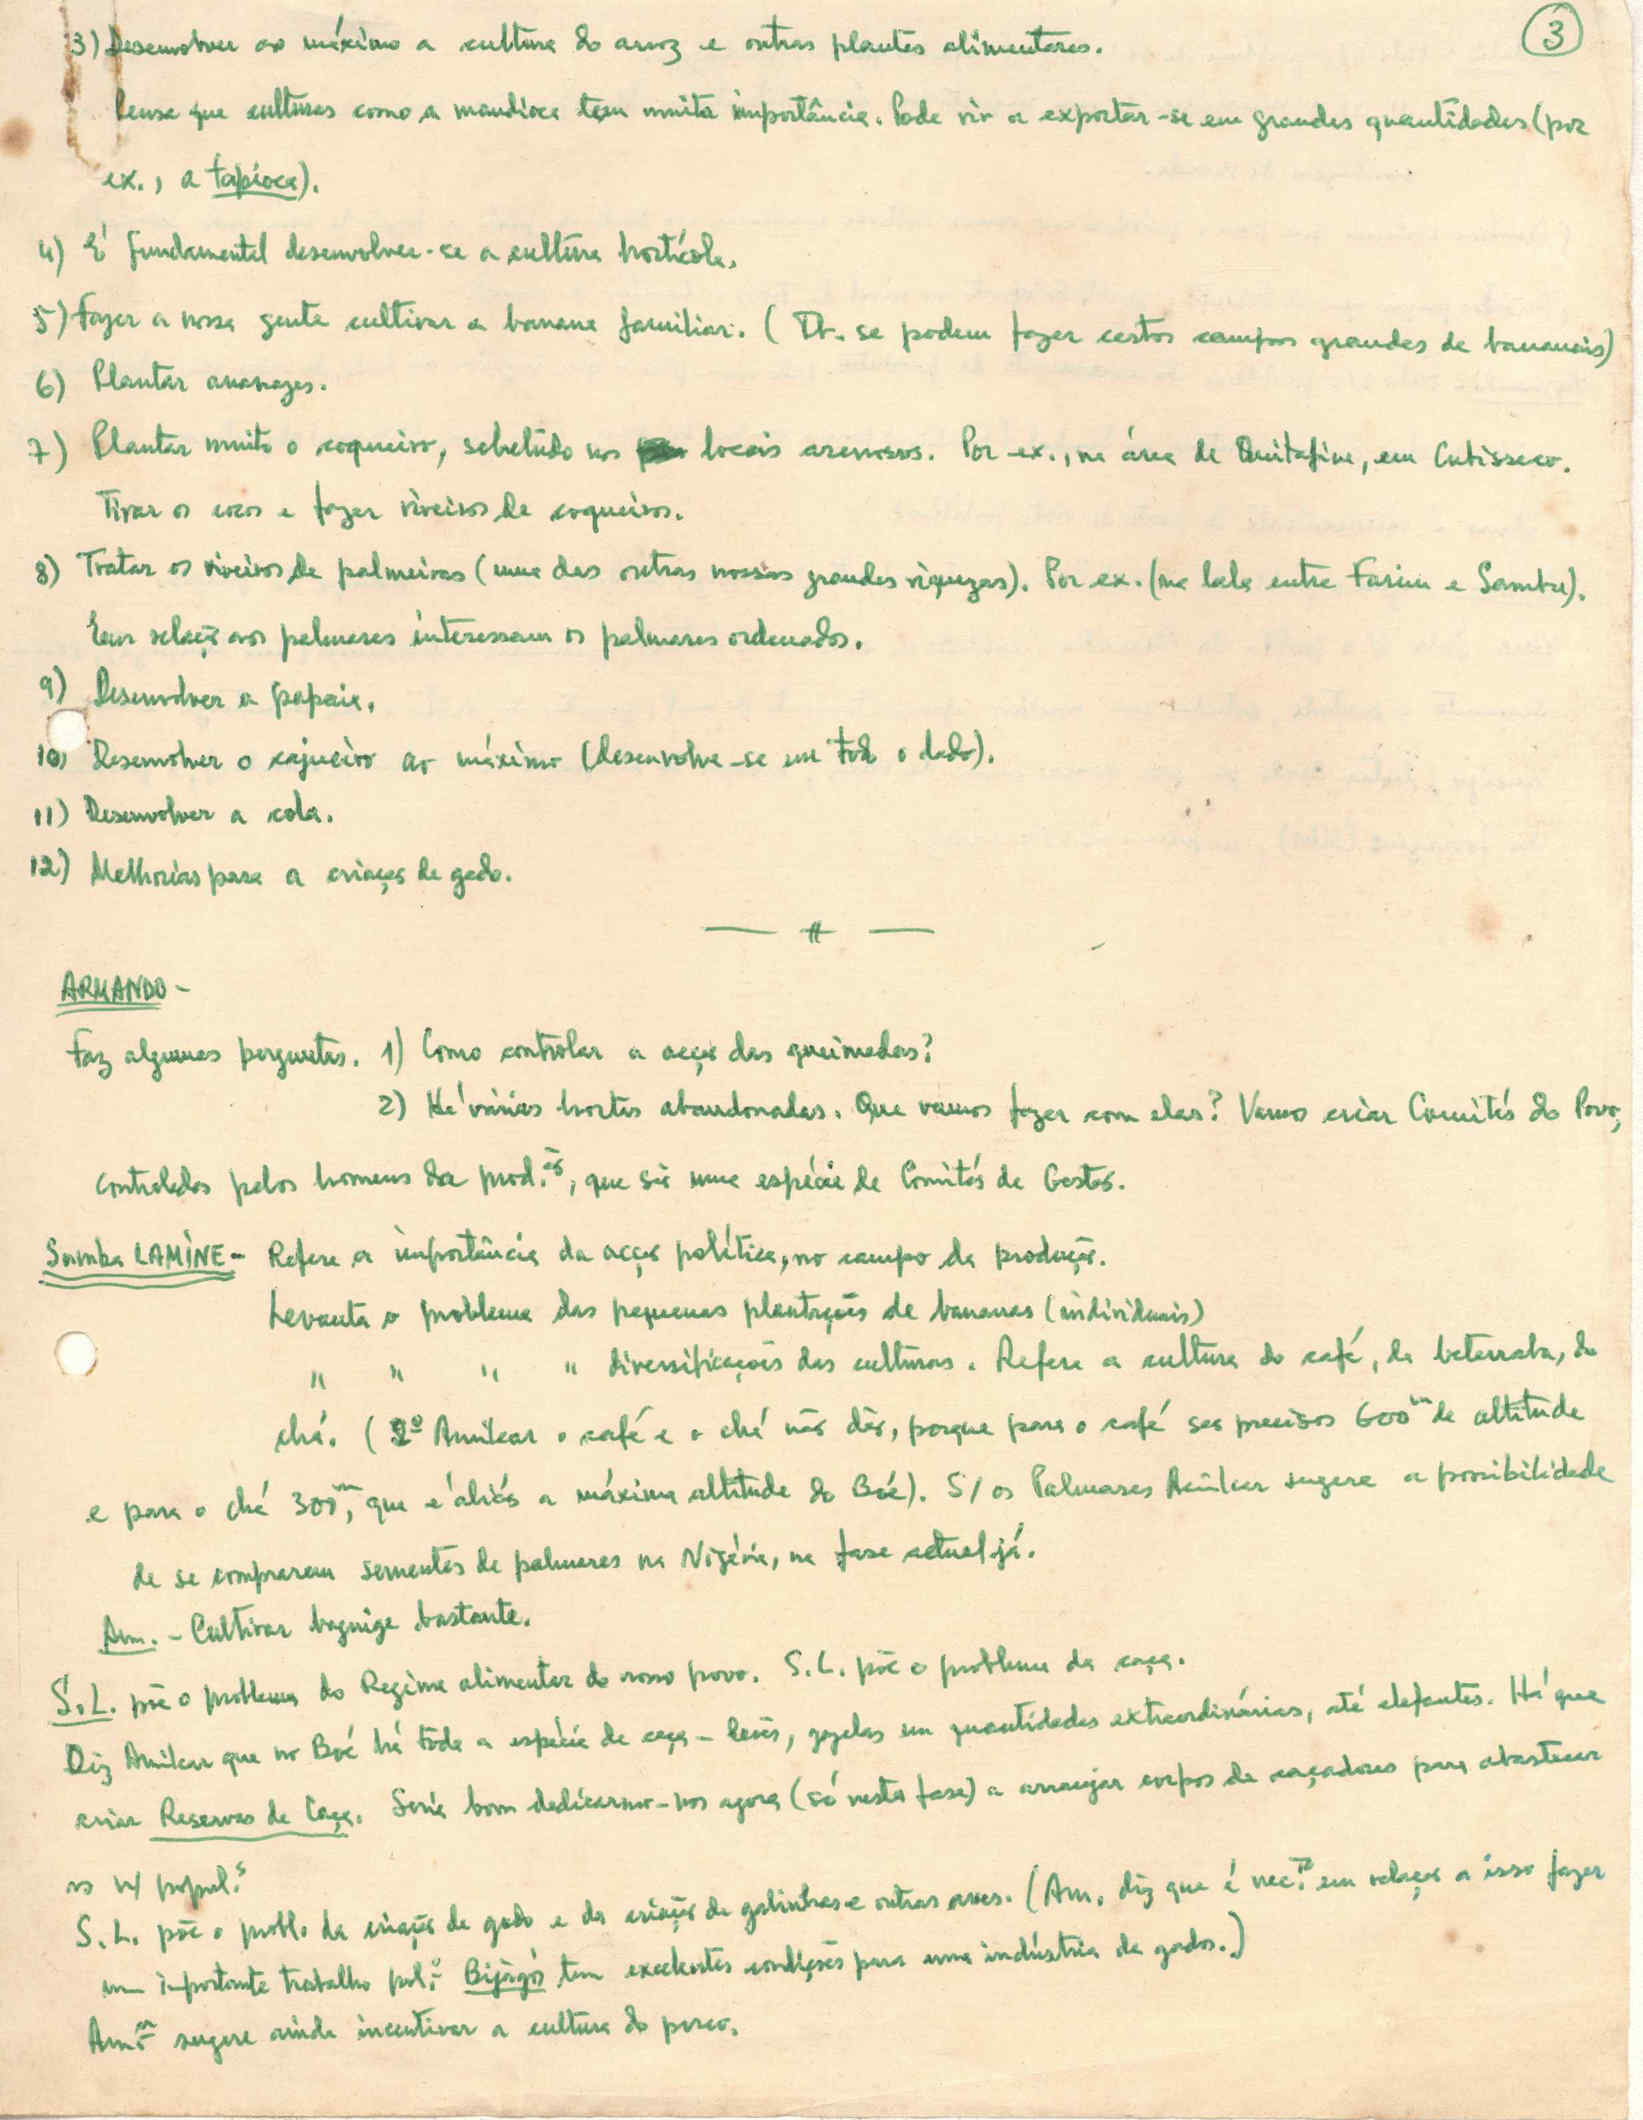 3
3) Desenvolver ao máximo a cultura do arroz e outras plantas alimentares.
Pensa que culturas como a mandioca tem muita importância. Pode vir a exportar-se em grandes quantidades (por
ex., a tapioca).
4) É fundamental desenvolver-se a cultura hortícola.
5) Fazer a nossa gente cultivar a banana familiar. (Tb. se podem fazer certos campos grandes de bananais)
6) Plantar ananazes.
7) Plantar muito o coqueiro, sobretudo nos locais arenosos. Por ex., na área de Quitafine, em Cubisseco.
Tirar os cocos e fazer viveiros de coqueiros.
8) Tratar os viveiros de palmeiras (uma das outras nossas grandes riquezas). Por ex. (na lala entre Farim e Sambu).
Em relação aos palmares interessam os palmares ordenados.
9) Desenvolver a papaia.
10) Desenvolver o cajueiro ao máximo (desenvolve-se em todo o lado).
11) Desenvolver a cola.
12) Melhorias para a criação de gado.
— # —
ARMANDO -
Faz algumas perguntas. 1) Como controlar a acção das queimadas?
2) Há várias hortas abandonadas. Que vamos fazer com elas? Vamos criar Comités do Povo,
controlados pelos homens da prod.ão, que são uma espécie de Comités de Gestão.
Samba LAMINE - Refere a importância da acção política, no campo da produção.
Levanta o problema das pequenas plantações de bananas (individuais)
" " " " diversificações das culturas. Refere a cultura do café, da beterraba, do
chá. (2º Amílcar o café e o chá não dão, porque para o café são precisos 600m de altitude
e para o chá 300m, que é aliás a máxima altitude do Boé). S/ os Palmares Amílcar sugere a possibilidade
de se comprarem sementes de palmares na Nigéria, na fase actual já.
Am. - Cultivar baguige bastante.
S.L. põe o problema do Regime alimentar do nosso povo. S.L. põe o problema da caça.
Diz Amílcar que no Boé há toda a espécie de caça - leões, gazelas em quantidades extraordinárias, até elefantes. Há que
criar Reservas de Caça. Seria bom dedicarmo-nos agora (só nesta fase) a arranjar corpos de caçadores para abastecer
as n/ popul.s
S.L. põe o probl. da criação de gado e da criação de galinhas e outras aves. (Am. diz que é nec.º em relação a isso fazer
um importante trabalho pol.º Bijagós tem excelentes condições para uma indústria de gados.)
Am. sugere ainda incentivar a cultura do porco.